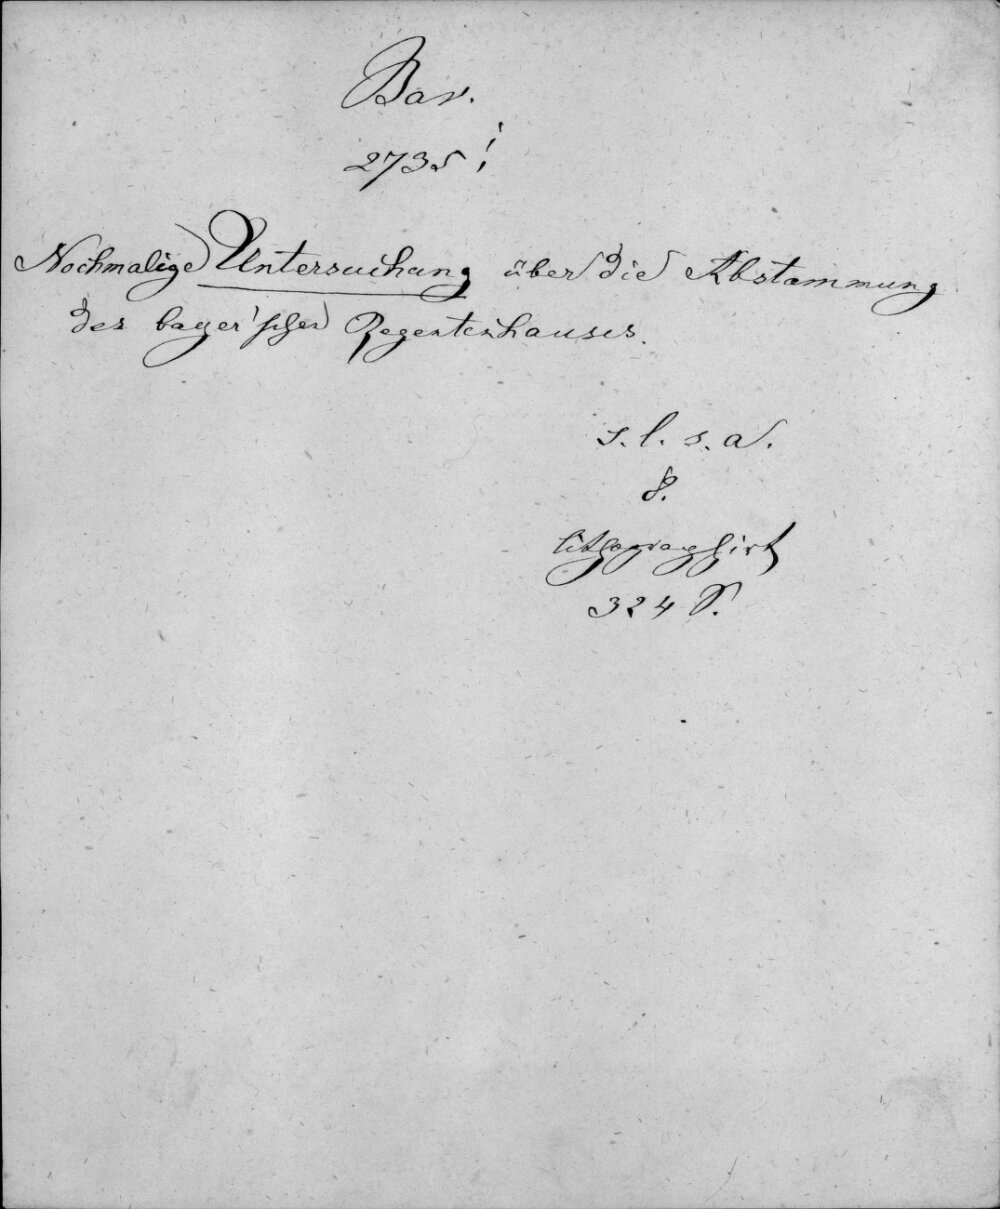 Bav.
2735 i
Nochmalige Untersuchung über die Abstammung
des bayer'schen Regentenhauses.
s. l. s. a.
8.
lithographirt
324 S.